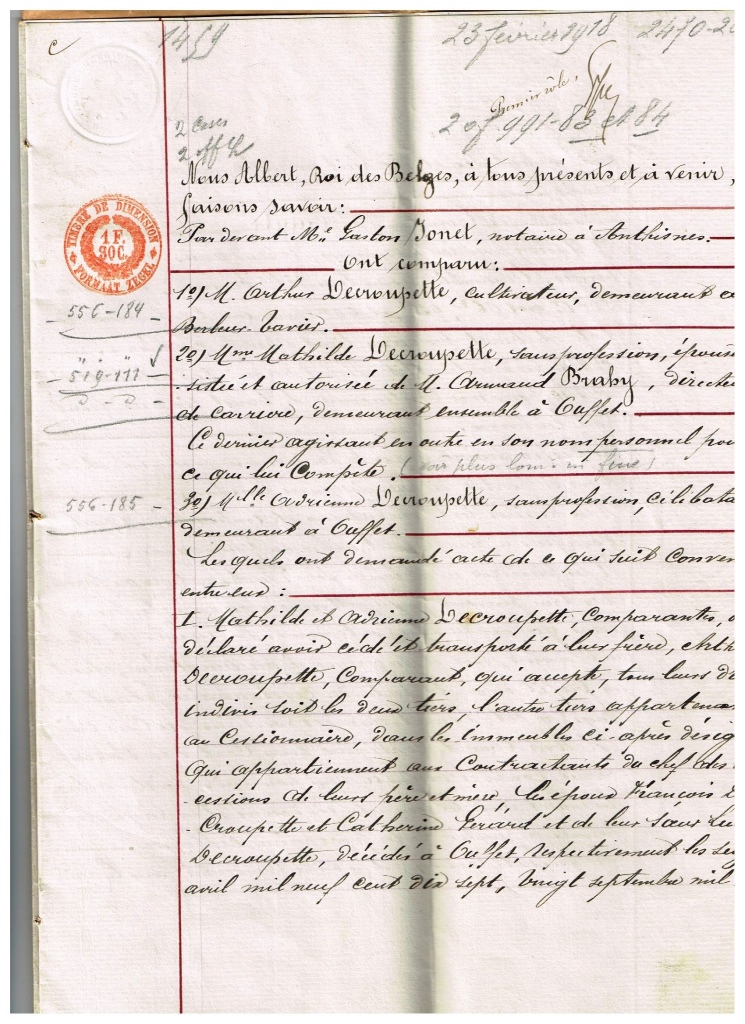 1459
23 février 1918 2470-2
Premier rôle,
2 of 991-83 et 84
2 off
Nous Albert, Roi des Belges, à tous présents et à venir,
faisons savoir :
Par devant Me Gaston Jonet, notaire à Anthisnes.
Ont comparu :
TIMBRE DE DIMENSION
1 F.
80C.
FORMAAT ZEGEL
1o) M. Arthur Decroupette, cultivateur, demeurant à
556-184
Berleur-Tavier.
2o) Mme Mathilde Decroupette, sans profession, épouse
519-111
sistée et autorisée de M. Armand Braby, directe
de carrière, demeurant ensemble à Ouffet.
Ce dernier agissant en outre en son nom personnel pou
ce qui lui compète. (voir plus loin : en
556-185
3o) Mlle Adrienne Decroupette, sans profession, célibata
demeurant à Ouffet.
Lesquels ont demandé acte de ce qui suit conven
entre eux :
I. Mathilde et Adrienne Decroupette, comparantes, o
déclaré avoir cédé et transporté à leur frère, Arth
Decroupette, comparant, qui accepte, tous leurs dr
indivis soit les deux tiers, l'autre tiers appartena
au Cessionnaire, dans les immeubles ci-après désig
qui appartiennent aux Contractants du chef des
cessions de leurs père et mère, les époux François D
-Croupette et Catherine Gérard et de leur sœur Lu
Decroupette, décédés à Ouffet, respectivement les se
avril mil neuf cent dix sept, vingt septembre mil